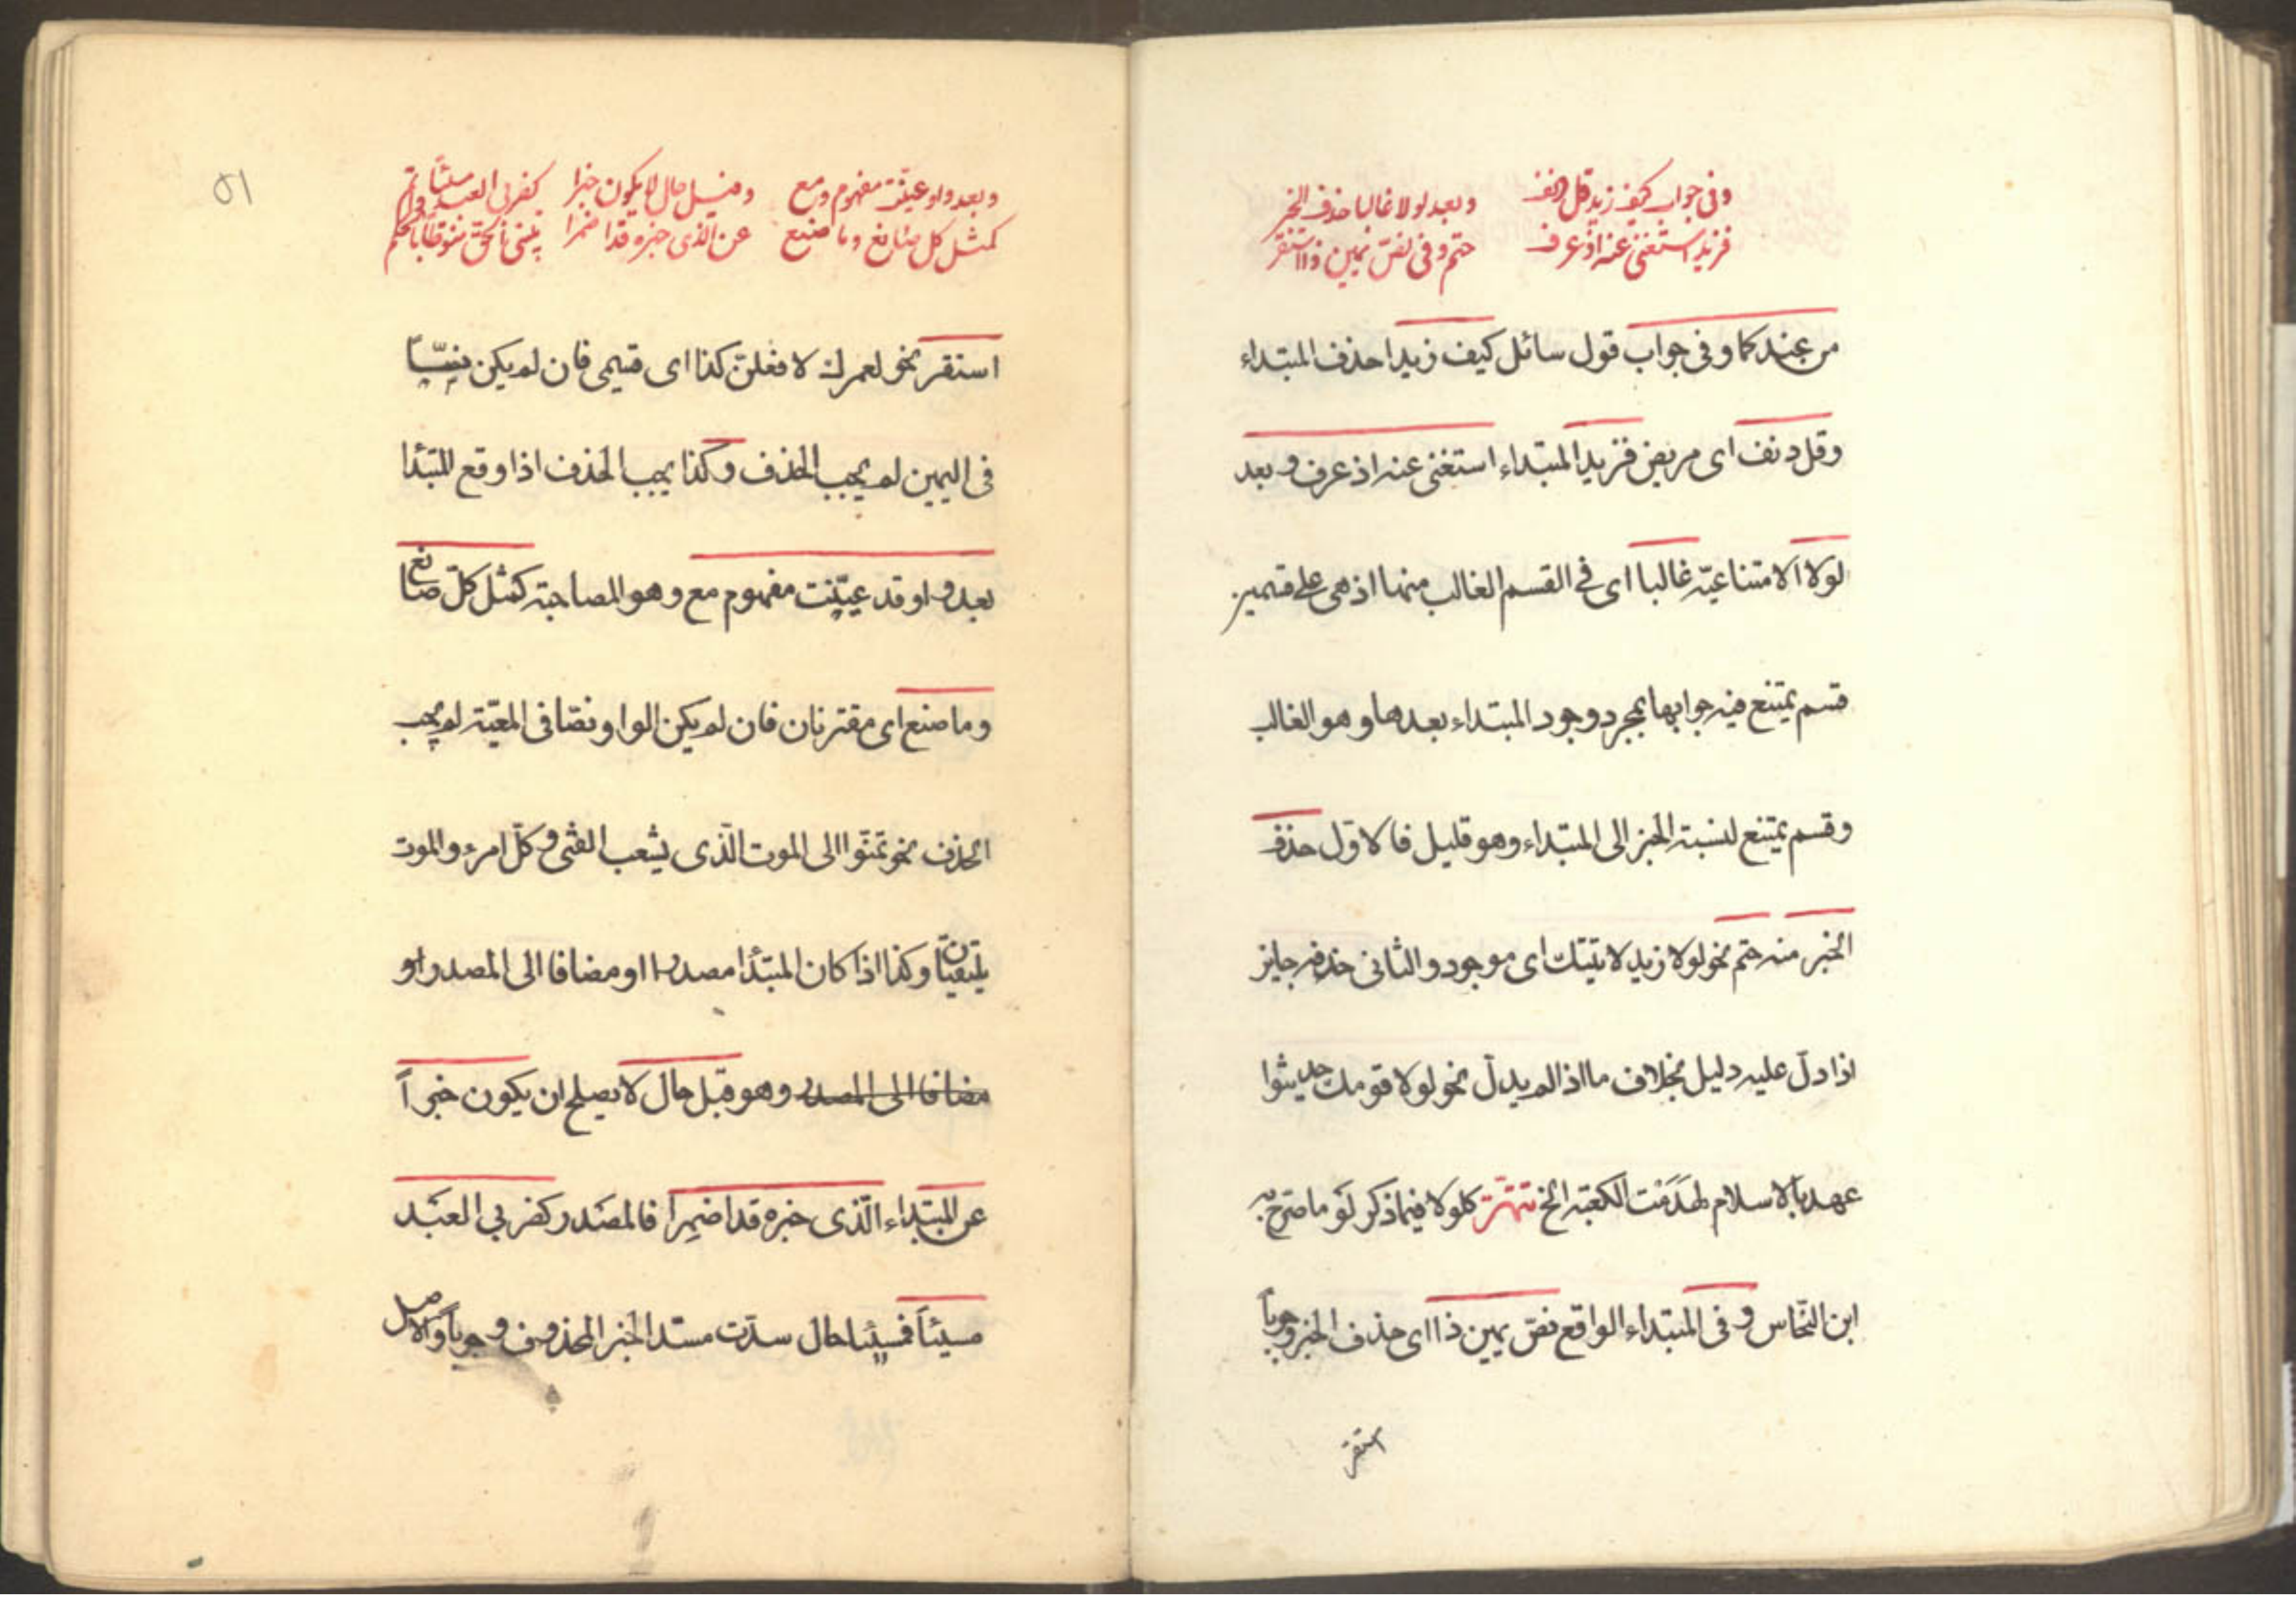 وفى جواب كيف زيد قل دنف وبعد لولا غالبا حذف الخبر
فزيد استغنى عنه اذ عرف حتم وفى نصّ يمين ذا استقر
من عندكما وفى جواب قول سائل كيف زيد احذف المبتداء
وقل دنف اى مريض فزيد المبتداء استغنى عنه اذ عرف وبعد
لولا الامتناعيّة غالبا اى فى القسم الغالب منها اذ هى على قسمين
قسم يمتنع فيه جوابها بمجرد وجود المبتداء بعدها وهو الغالب
وقسم يمتنع لنسبة الخبر الى المبتداء وهو قليل فالاوّل حذف
الخبر منه حتم نحو لولا زيد لاتيتك اى موجود والثانى حذفه جايز
اذا دلّ عليه دليل بخلاف ما اذا لم يدلّ نحو لولا قومك حديثوا
عهد بالاسلام لهَدَمْت الكعبة الخ تتمّة كلولا فيما ذكر لَوْ ما صرّح به
ابن النحّاس وفى المبتداء الواقع نصّ يمين ذا اى حذف الخبر وجوباً
استقر
٥١
وبعد واو عيّنت مفهوم مع وقبل حال لا يكون خبرا كضربى العبد مسيئاً واتم
كمثل كل صانع وما صنع عن الذى خبره قد اضمرا تبيينى الحق منوطا بالحكم
استقر نحو لعمرك لافعلنّ كذا اى قسمى فان لم يكن نصّاً
فى اليمين لم يجب الحذف وكذا يجب الحذف اذا وقع المبتدأ
بعد واو قد عيّنت مفهوم مع وهو المصاحبة كمثل كلّ صانع
وما صنع اى مقترنان فان لم يكن الواو نصّا فى المعيّة لم يجب
الحذف نحو تمنّوا الى الموت الّذى يشعب الفتى وكلّ امرء والموت
يلتقيان وكذا اذا كان المبتدأ مصدرا او مضافا الى المصدر او
مضافا الى المصدر وهو قبل حال لا يصلح ان يكون خبراً
عن المبتداء الّذى خبره قد اضمِرا فالمصدر كضربي العبَد
مسيئاً فمسيئا حال سدّت مسدّ الخبر المحذوف وجوباً والاصل